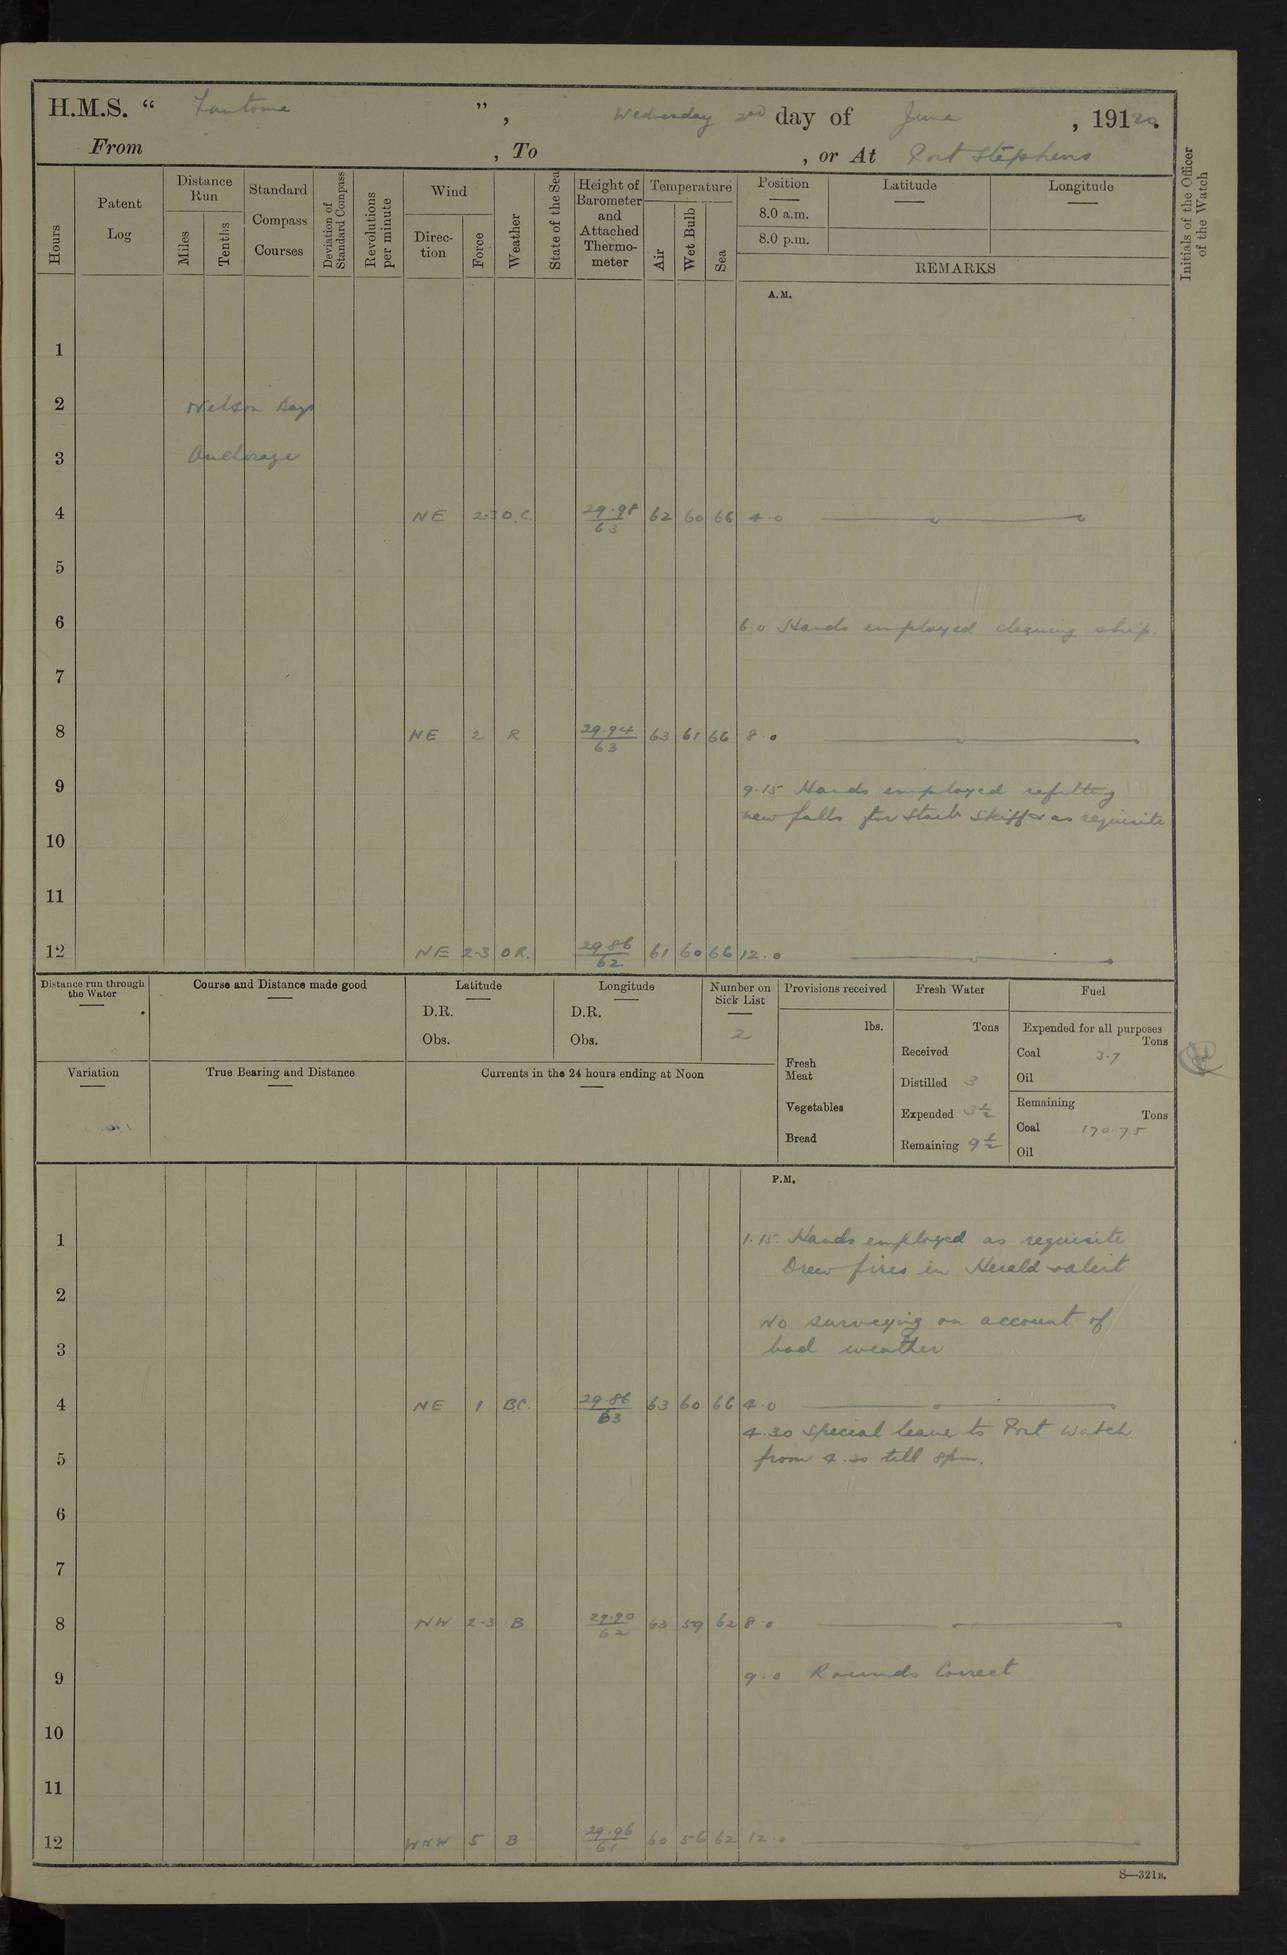 H.M.S. “ Fantome ”, Wednesday 2nd day of June, 1920.
From , To , or At Port Stephens
Hours
Patent Log
Distance Run
Miles
Tenths
Standard Compass Courses
Deviation of Standard Compass
Revolutions per minute
Wind
Direction
Force
Weather
State of the Sea
Height of Barometer and Attached Thermometer
Temperature
Air
Wet Bulb
Sea
Position
8.0 a.m.
8.0 p.m.
Latitude
Longitude
REMARKS
Initials of the Officer of the Watch
A.M.
1
2 Nelson Bay
3 Anchorage
4 NE 2-3 O.C. 29.98/63 62 60 66 4.0
5
6 6.0 Hands employed cleaning ship.
7
8 NE 2 R 29.94/63 63 61 66 8.0
9 9.15 Hands employed refitting
new falls for Starb Skiff & as requisite
10
11
12 NE 2-3 OR. 29.86/62 61 60 66 12.0
Distance run through the Water
Course and Distance made good
Latitude
D.R.
Obs.
Longitude
D.R.
Obs.
Number on Sick List
2
Provisions received
lbs.
Fresh Meat
Vegetables
Bread
Fresh Water
Tons
Received
Distilled 3
Expended 3½
Remaining 9½
Fuel
Expended for all purposes
Tons
Coal 3.7
Oil
Remaining
Tons
Coal 170.75
Oil
Variation
True Bearing and Distance
Currents in the 24 hours ending at Noon
P.M.
1 1.15. Hands employed as requisite
Drew fires in Herald
2
No surveying on account of
3 bad weather
4 NE 1 BC. 29.86/63 63 60 66 4.0
4.30 Special leave to Port Watch
5 from 4.30 till 8pm.
6
7
8 NW 2-3 B 29.90/62 63 59 62 8.0
9 9.0 Rounds Correct
10
11
12 WNW 5 B 29.96/61 60 56 62 12.0
S—321B.